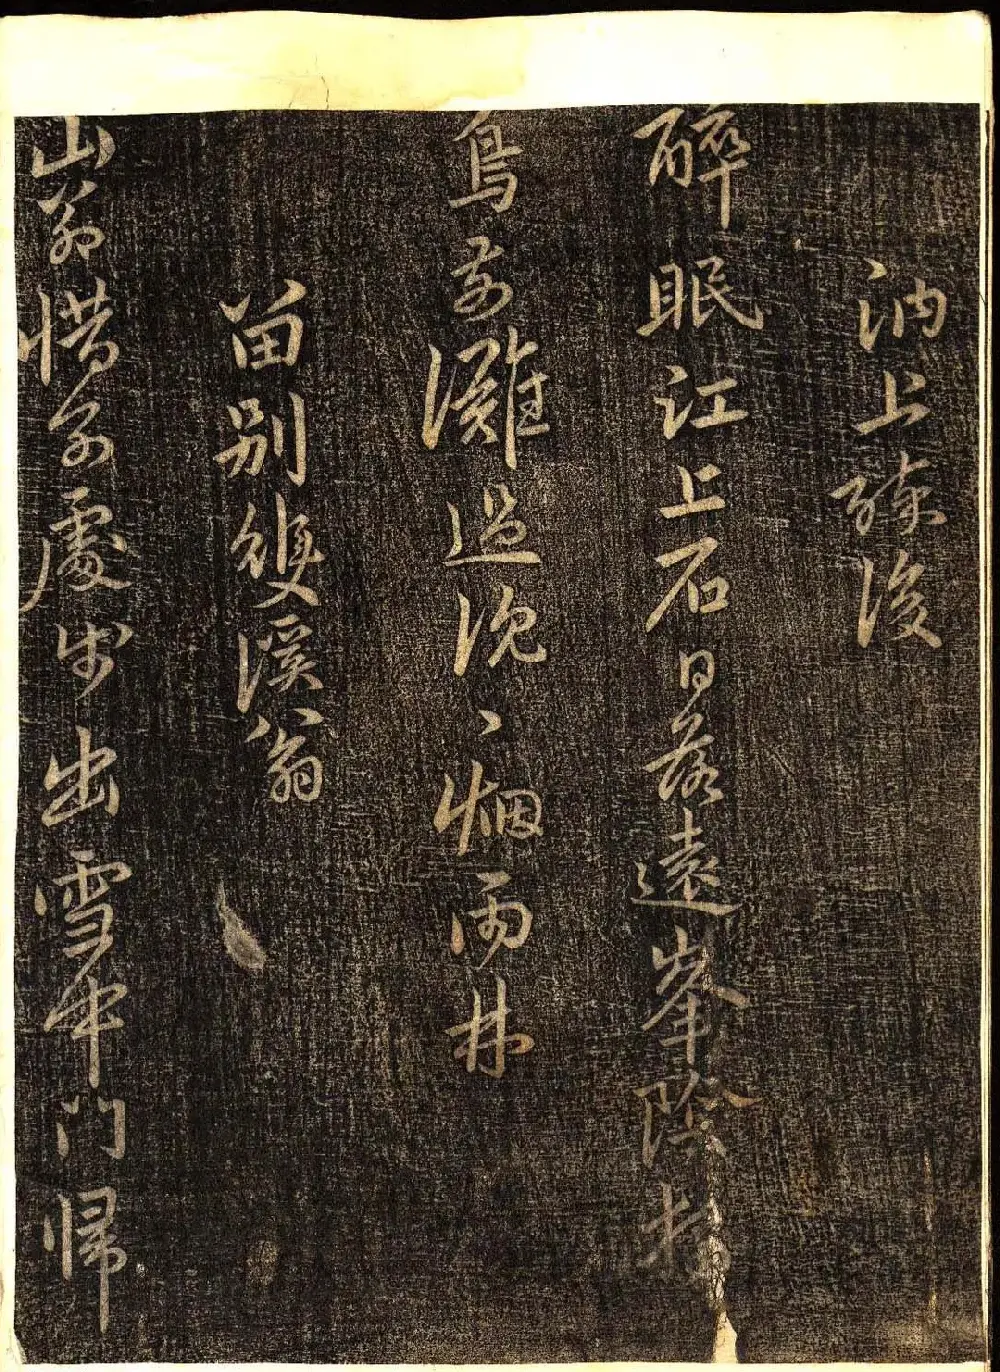 汭上後
醉眠江上石日落遠峯陰
鳥前灘過沉〻烟雨林
留別雙溪翁
山翁惜分處步出雪中門歸